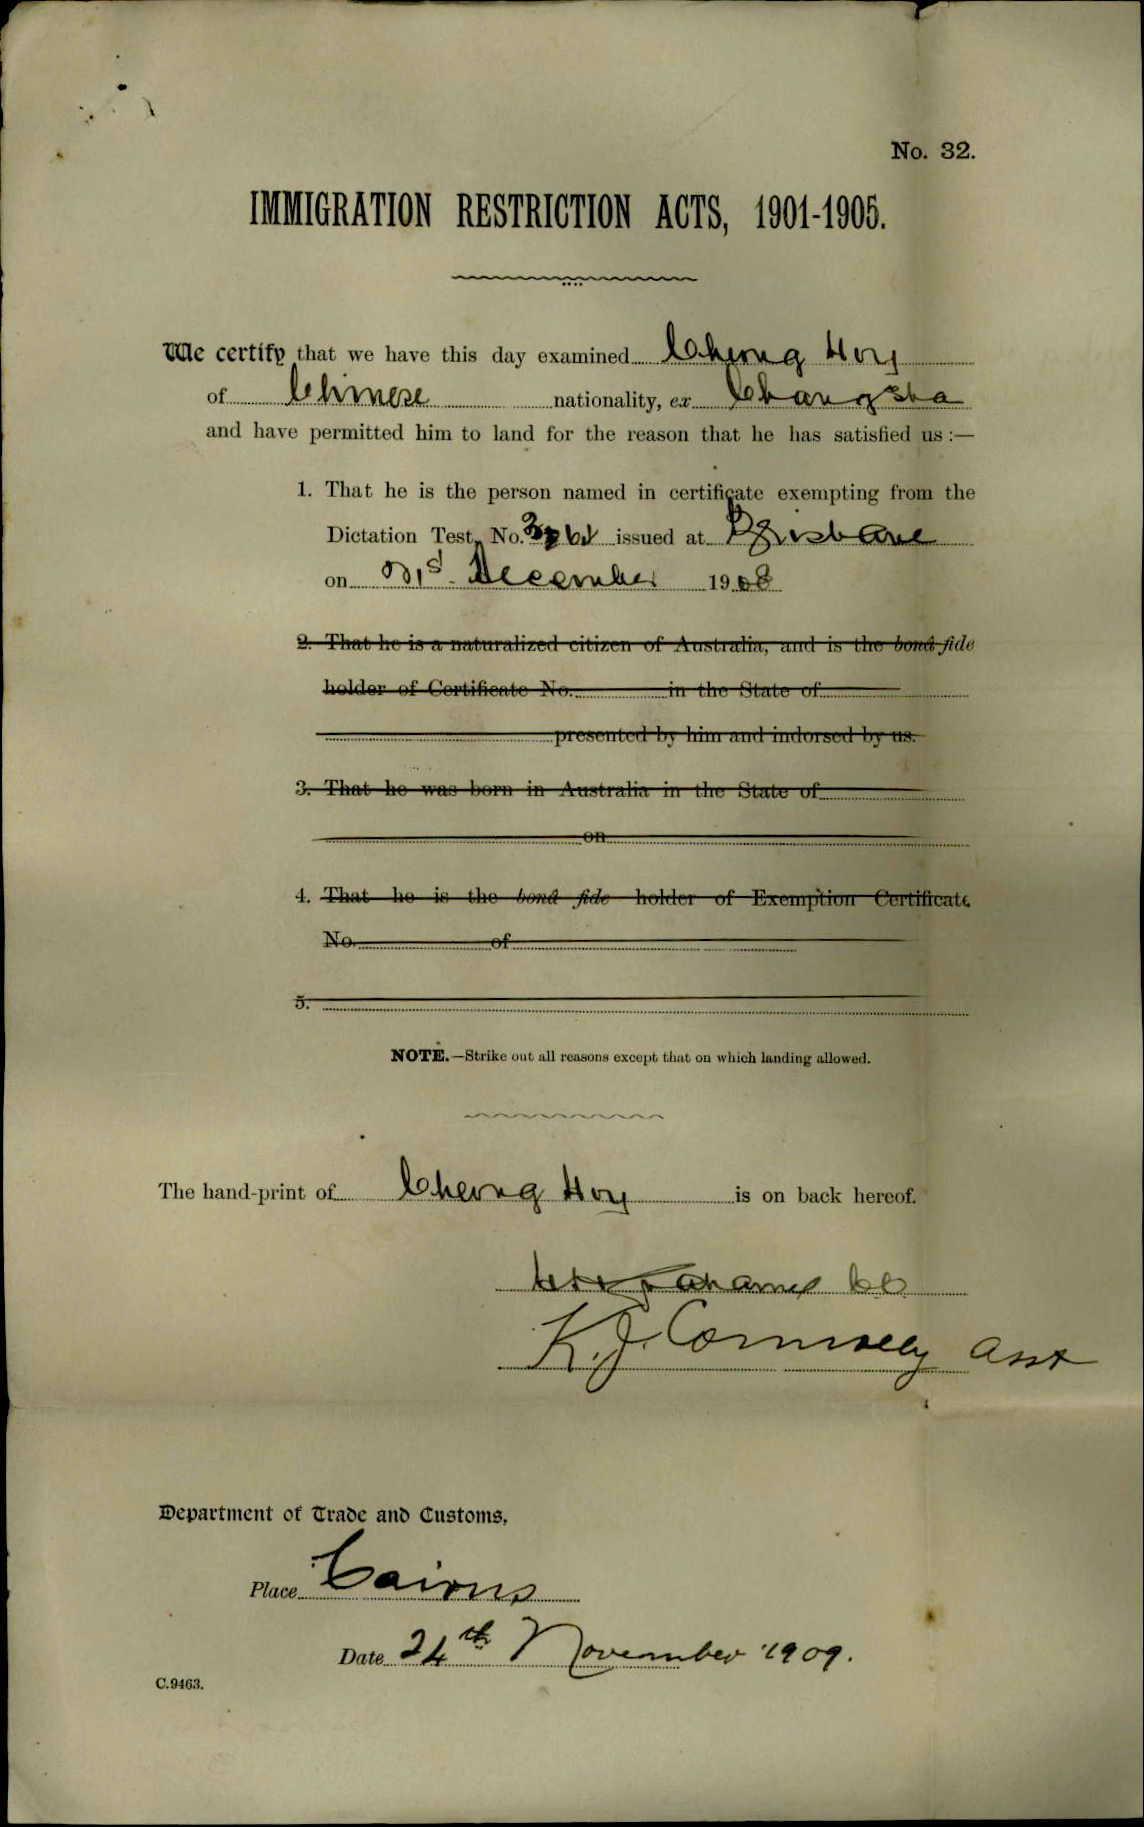 No. 32.
IMMIGRATION RESTRICTION ACTS, 1901-1905.
We certify that we have this day examined Cheong Hoy
of Chinese nationality, ex Changsha
and have permitted him to land for the reason that he has satisfied us :—
1. That he is the person named in certificate exempting from the
Dictation Test, No. issued at Brisbane
on December 1908
2. That he is a naturalized citizen of Australia, and is the bonâ fide
holder of Certificate No. in the State of
presented by him and indorsed by us.
3. That he was born in Australia in the State of
on
4. That he is the bonâ fide holder of Exemption Certificate
No. of
5.
NOTE.—Strike out all reasons except that on which landing allowed.
The hand-print of Cheong Hoy is on back hereof.
K. J. Connolly Asst
Department of Trade and Customs,
Place Cairns
Date 24th November 1909.
C.9463.